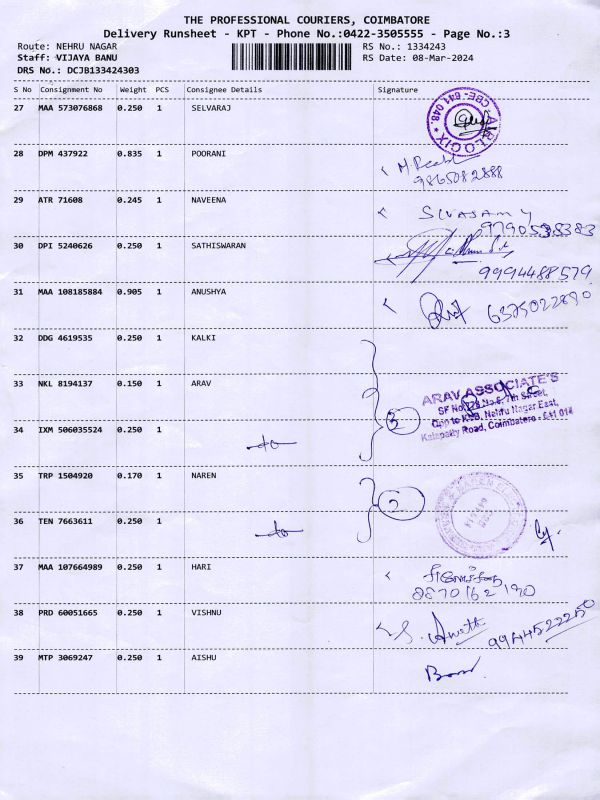 THE PROFESSIONAL COURIERS, COIMBATORE
Delivery Runsheet - KPT - Phone No.:0422-3505555 - Page No.:3
Route: NEHRU NAGAR RS No.: 1334243
Staff: VIJAYA BANU RS Date: 08-Mar-2024
DRS No.: DCJB133424303
S No Consignment No Weight PCS Consignee Details Signature
27 MAA 573076868 0.250 1 SELVARAJ
CBE- 641 048.
28 DPM 437922 0.835 1 POORANI
9865082888
29 ATR 71608 0.245 1 NAVEENA SIVASAMY
9790538383
30 DPI 5240626 0.250 1 SATHISWARAN
9994488579
31 MAA 108185884 0.905 1 ANUSHYA 6375022890
32 DDG 4619535 0.250 1 KALKI
33 NKL 8194137 0.150 1 ARAV 3
ARAV ASSOCIATE'S
7th Street,
Opp to KMB, Nehru Nagar East,
Kalapatty Road, Coimbatore - 641 014
34 IXM 506035524 0.250 1 -do-
35 TRP 1504920 0.170 1 NAREN 2
36 TEN 7663611 0.250 1 -do-
37 MAA 107664989 0.250 1 HARI
8870162130
38 PRD 60051665 0.250 1 VISHNU
39 MTP 3069247 0.250 1 AISHU